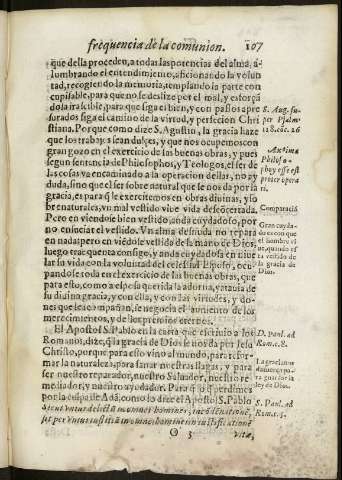 frequencia de la comunion. 107
que della proceden, a todas las potencias del alma, a-
lumbrando el entendimiento, aficionando la volun
tad, recogiendo la memoria, templando la parte con
cupisable, para que no se deslize por el mal, y esforçã
do la irascible, para que siga el bien, y con passos apre
surados siga el camino de la virtud, y perfecion Chri
stiana. Porque como dize S. Agustin, la gracia haze
que los trabajos sean dulçes, y que nos ocupemos con
gran gozo en el exercicio de las buenas obras, y pues
segun sentencia de Philosophos, y Teologos, el ser de
las cosas va encaminado a la operacion dellas, no ay
duda, sino que el ser sobre natural que se nos da por la
gracia, es para q̃ le exercitemos en obras divinas, y so
brenaturales, vn mal vestido vive vida desconcertada,
Pero en viendose bien vestido, anda cuydadoso, por
no ensuciar el vestido. Vn alma desnuda no repara
en nada: pero en viẽdose vestida de la mano de Dios,
luego trae quenta consigo, y anda cuydadosa en nive
lar su vida con la voluntad del celestial Esposo, ocu
pandose toda en el exercicio de las buenas obras, que
para esto, como a esposa querida la adorna, y atavia de
su divina gracia, y con ella, y con las virtudes, y do-
nes que le acompañan, se negocia el aumento de los
merecimientos, y de los premios eternos.
El Apostol S. Pablo en la carta que escrivio a los
Romanos, dize, q̃ la gracia de Dios se nos da por Iesu
Christo, porque para esto vino al mundo, para refor-
mar la naturaleza, para sanar nuestras llagas, y para
ser nuestro reparador, nuestro Salvador, nuestro re-
mediador, y nuestro ayudador. Para q̃ si perdimos
por la culpa de Adã, como lo dize el Apostol S. Pablo
sicut per unius delictũ in omnes homines, in cõdẽnationẽ,
sic per unius iustitiã in omnes homines in iustificationẽ
O 3 vitæ,
S. Aug. su
per Psalm
118. cõc. 26
Axioma
Philoso-
phoȝ esse est
propter opera
ri.
Comparaciõ
Gran cuyda-
do es con que
el hombre vi
ve, quando es
ta vestido de
la gracia de
Dios.
D. Paul. ad
Rom. c. 8.
ley de Dios.
S. Paul. ad
Rom. c. 5.